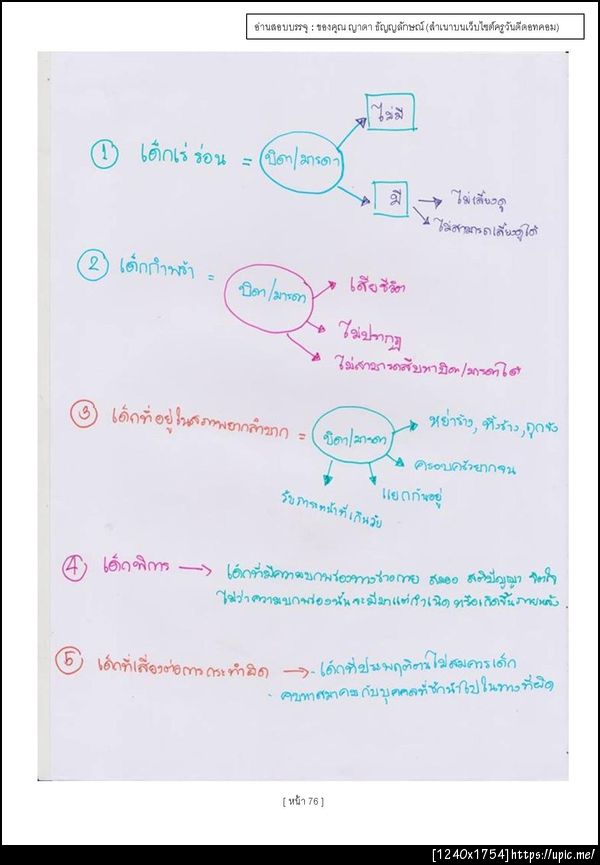 อ่านสอบบรรจุ : ของคุณ ญาดา ธัญญลักษณ์ (สำเนาบนเว็บไซต์ครูวันดีดอทคอม)
ไม่มี
① เด็กเร่ร่อน = บิดา/มารดา
มี → ไม่เลี้ยงดู
ไม่สามารถเลี้ยงดูได้
② เด็กกำพร้า = บิดา/มารดา
เสียชีวิต
ไม่ปรากฏ
ไม่สามารถสืบหาบิดา/มารดาได้
③ เด็กที่อยู่ในสภาพยากลำบาก = บิดา/มารดา
หย่าร้าง, ทิ้งร้าง, ถูกขัง
ครอบครัวยากจน
แยกกันอยู่
รับภาระหน้าที่เกินวัย
④ เด็กพิการ → เด็กที่มีความบกพร่องทางร่างกาย สมอง สติปัญญา จิตใจ
ไม่ว่าความบกพร่องนั้นจะมีมาแต่กำเนิด หรือเกิดขึ้นภายหลัง
⑤ เด็กที่เสี่ยงต่อการกระทำผิด → - เด็กที่ประพฤติตนไม่สมควรเด็ก
- คบหาสมาคมกับบุคคลที่ชักนำไปในทางที่ผิด
[ หน้า 76 ]
[1240x1754]https://upic.me/